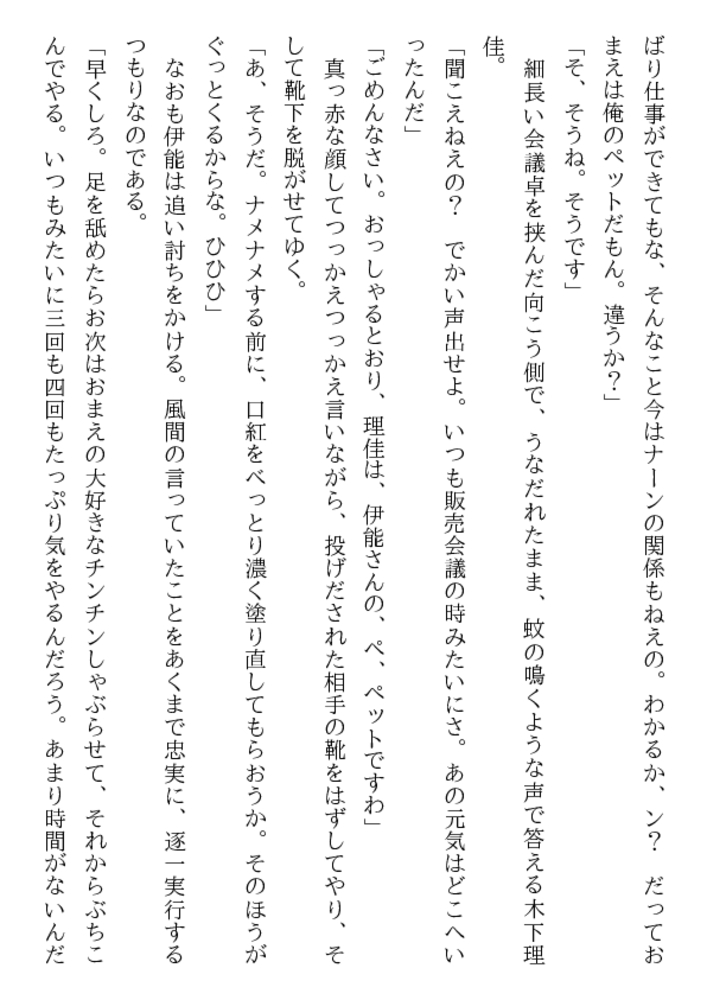 ばり仕事ができてもな、そんなこと今はナーンの関係もねえの。わかるか、ン？　だってお
まえは俺のペットだもん。違うか？」
「そ、そうね。そうです」
　細長い会議卓を挟んだ向こう側で、うなだれたまま、蚊の鳴くような声で答える木下理
佳。
「聞こえねえの？　でかい声出せよ。いつも販売会議の時みたいにさ。あの元気はどこへい
ったんだ」
「ごめんなさい。おっしゃるとおり、理佳は、伊能さんの、ペ、ペットですわ」
　真っ赤な顔してつっかえつっかえ言いながら、投げだされた相手の靴をはずしてやり、そ
して靴下を脱がせてゆく。
「あ、そうだ。ナメナメする前に、口紅をべっとり濃く塗り直してもらおうか。そのほうが
ぐっとくるからな。ひひひ」
　なおも伊能は追い討ちをかける。風間の言っていたことをあくまで忠実に、逐一実行する
つもりなのである。
「早くしろ。足を舐めたらお次はおまえの大好きなチンチンしゃぶらせて、それからぶちこ
んでやる。いつもみたいに三回も四回もたっぷり気をやるんだろう。あまり時間がないんだ